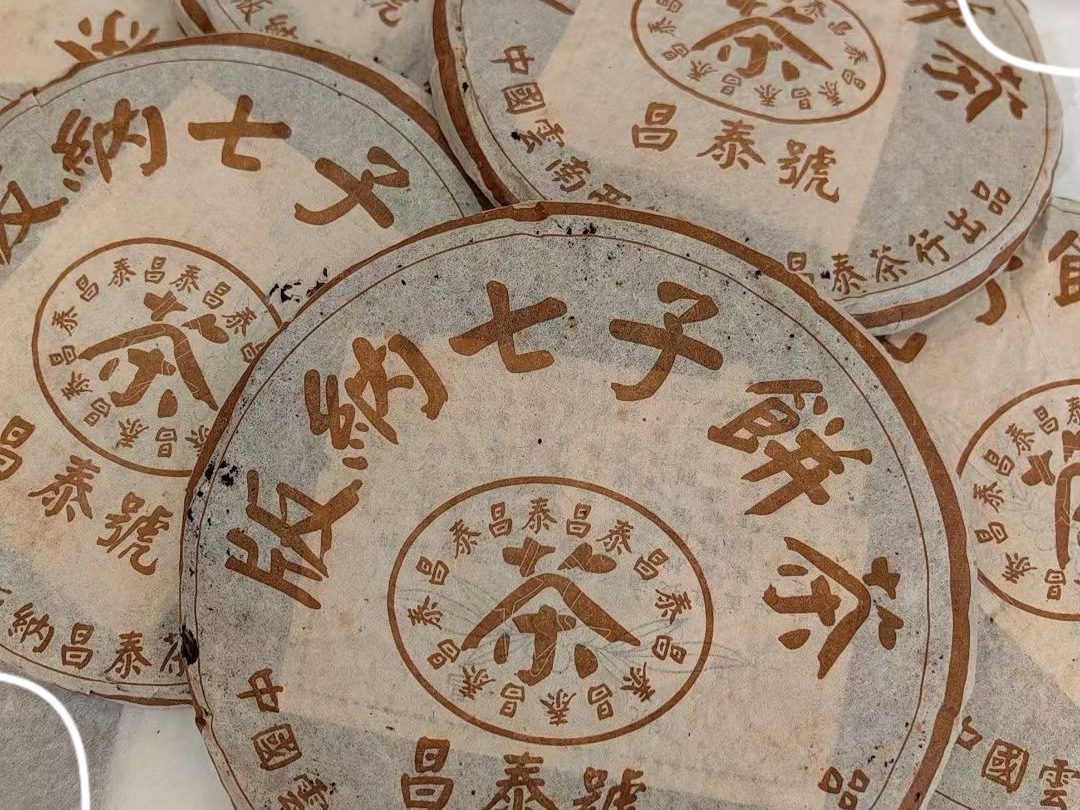 版納七子
昌泰昌泰昌泰昌泰昌泰昌泰
茶
昌泰號
納昌泰茶
餅茶
泰昌泰昌泰昌泰昌泰昌
茶
昌泰號
中國雲南西
昌泰茶行出品
版納七子餅茶
昌泰昌泰昌泰昌泰昌泰昌泰昌泰昌泰
茶
昌泰號
中國雲
品
昌泰昌泰昌泰昌泰
國雲